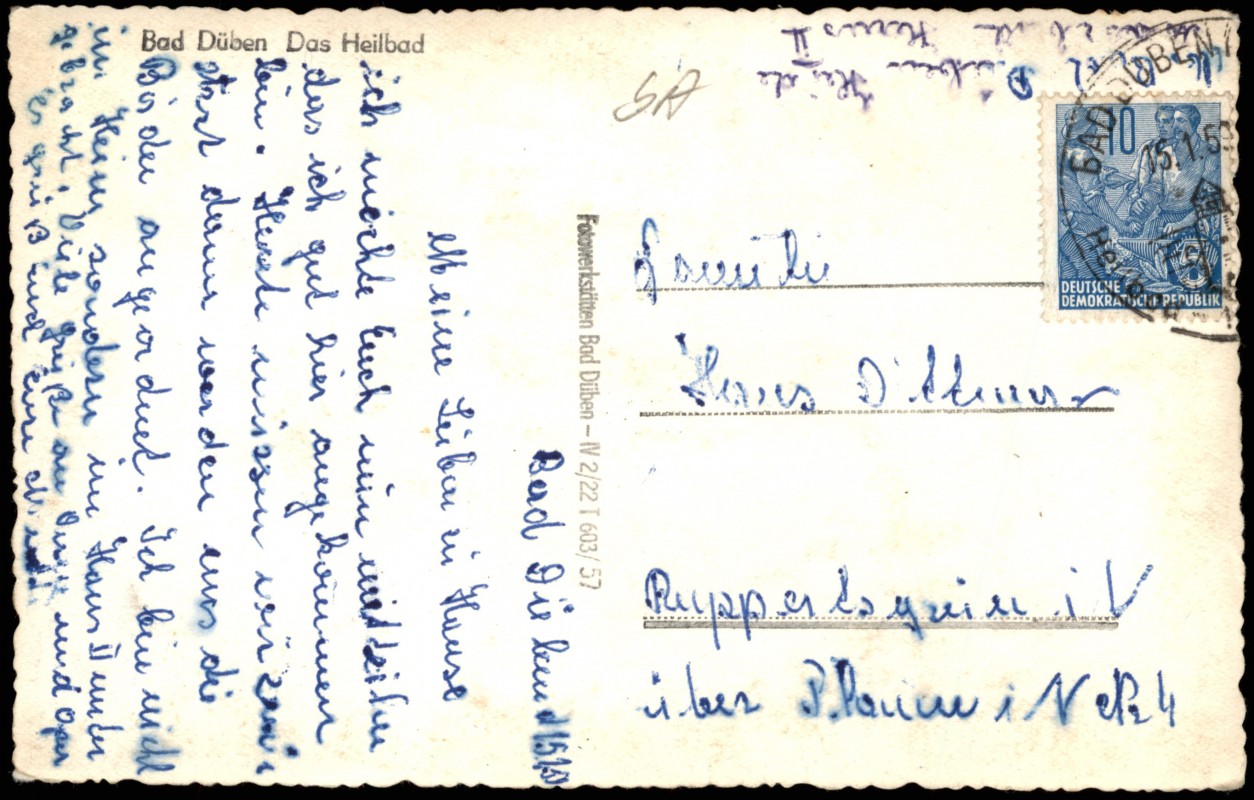 Bad Düben Das Heilbad
Bad Düben d 15.1.59
Meine Lieben zu Hause
ich möchte Euch nun mitteilen
das ich gut hier angekommen
bin. Heute müssen wir zum
Arzt dann werden uns die
Bäder angeordnet. Ich bin nicht
im Heim sondern im Haus II unter
gebracht. Viele Grüße an und Oper
Es grüßt und eure
Fotowerkstätten Bad Düben – IV 2/22 T 603/57
Düben Heide
Haus II
BAD DÜBEN
15.1.59
10
DEUTSCHE
DEMOKRATISCHE REPUBLIK
Familie
Hans Dittmar
Ruppertsgrün i V
über Plauen i V Nr 4